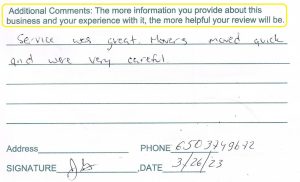 Additional Comments: The more information you provide about this
business and your experience with it, the more helpful your review will be.
Service was great. Movers moved quick
and were very careful.
Address
PHONE 6503749672
SIGNATURE
,DATE 3/26/23